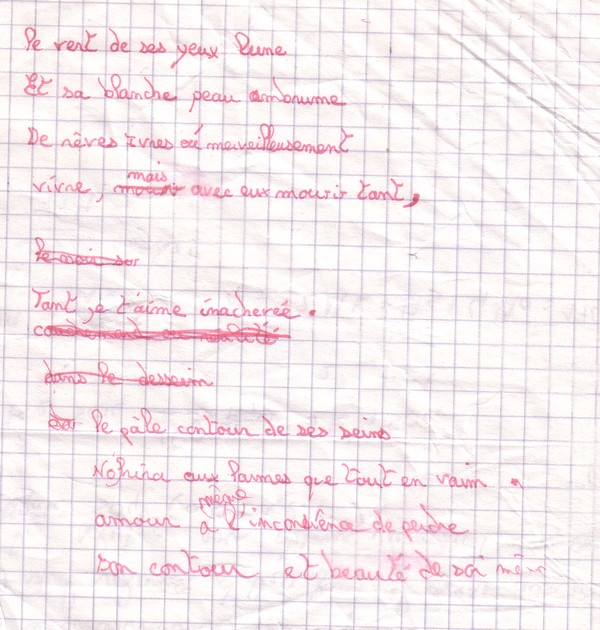 le vent de ses yeux lune
Et sa blanche peau embrume
De rêves ivres où merveilleusement
mais
vivre, mourir avec eux mourir tant,
le
Tant je t'aime inachevée.
dans le dessein
le pâle contour de ses seins
aux larmes que tout en vain
mène
amour a l'inconscience de perdre
son contour et beauté de soi même